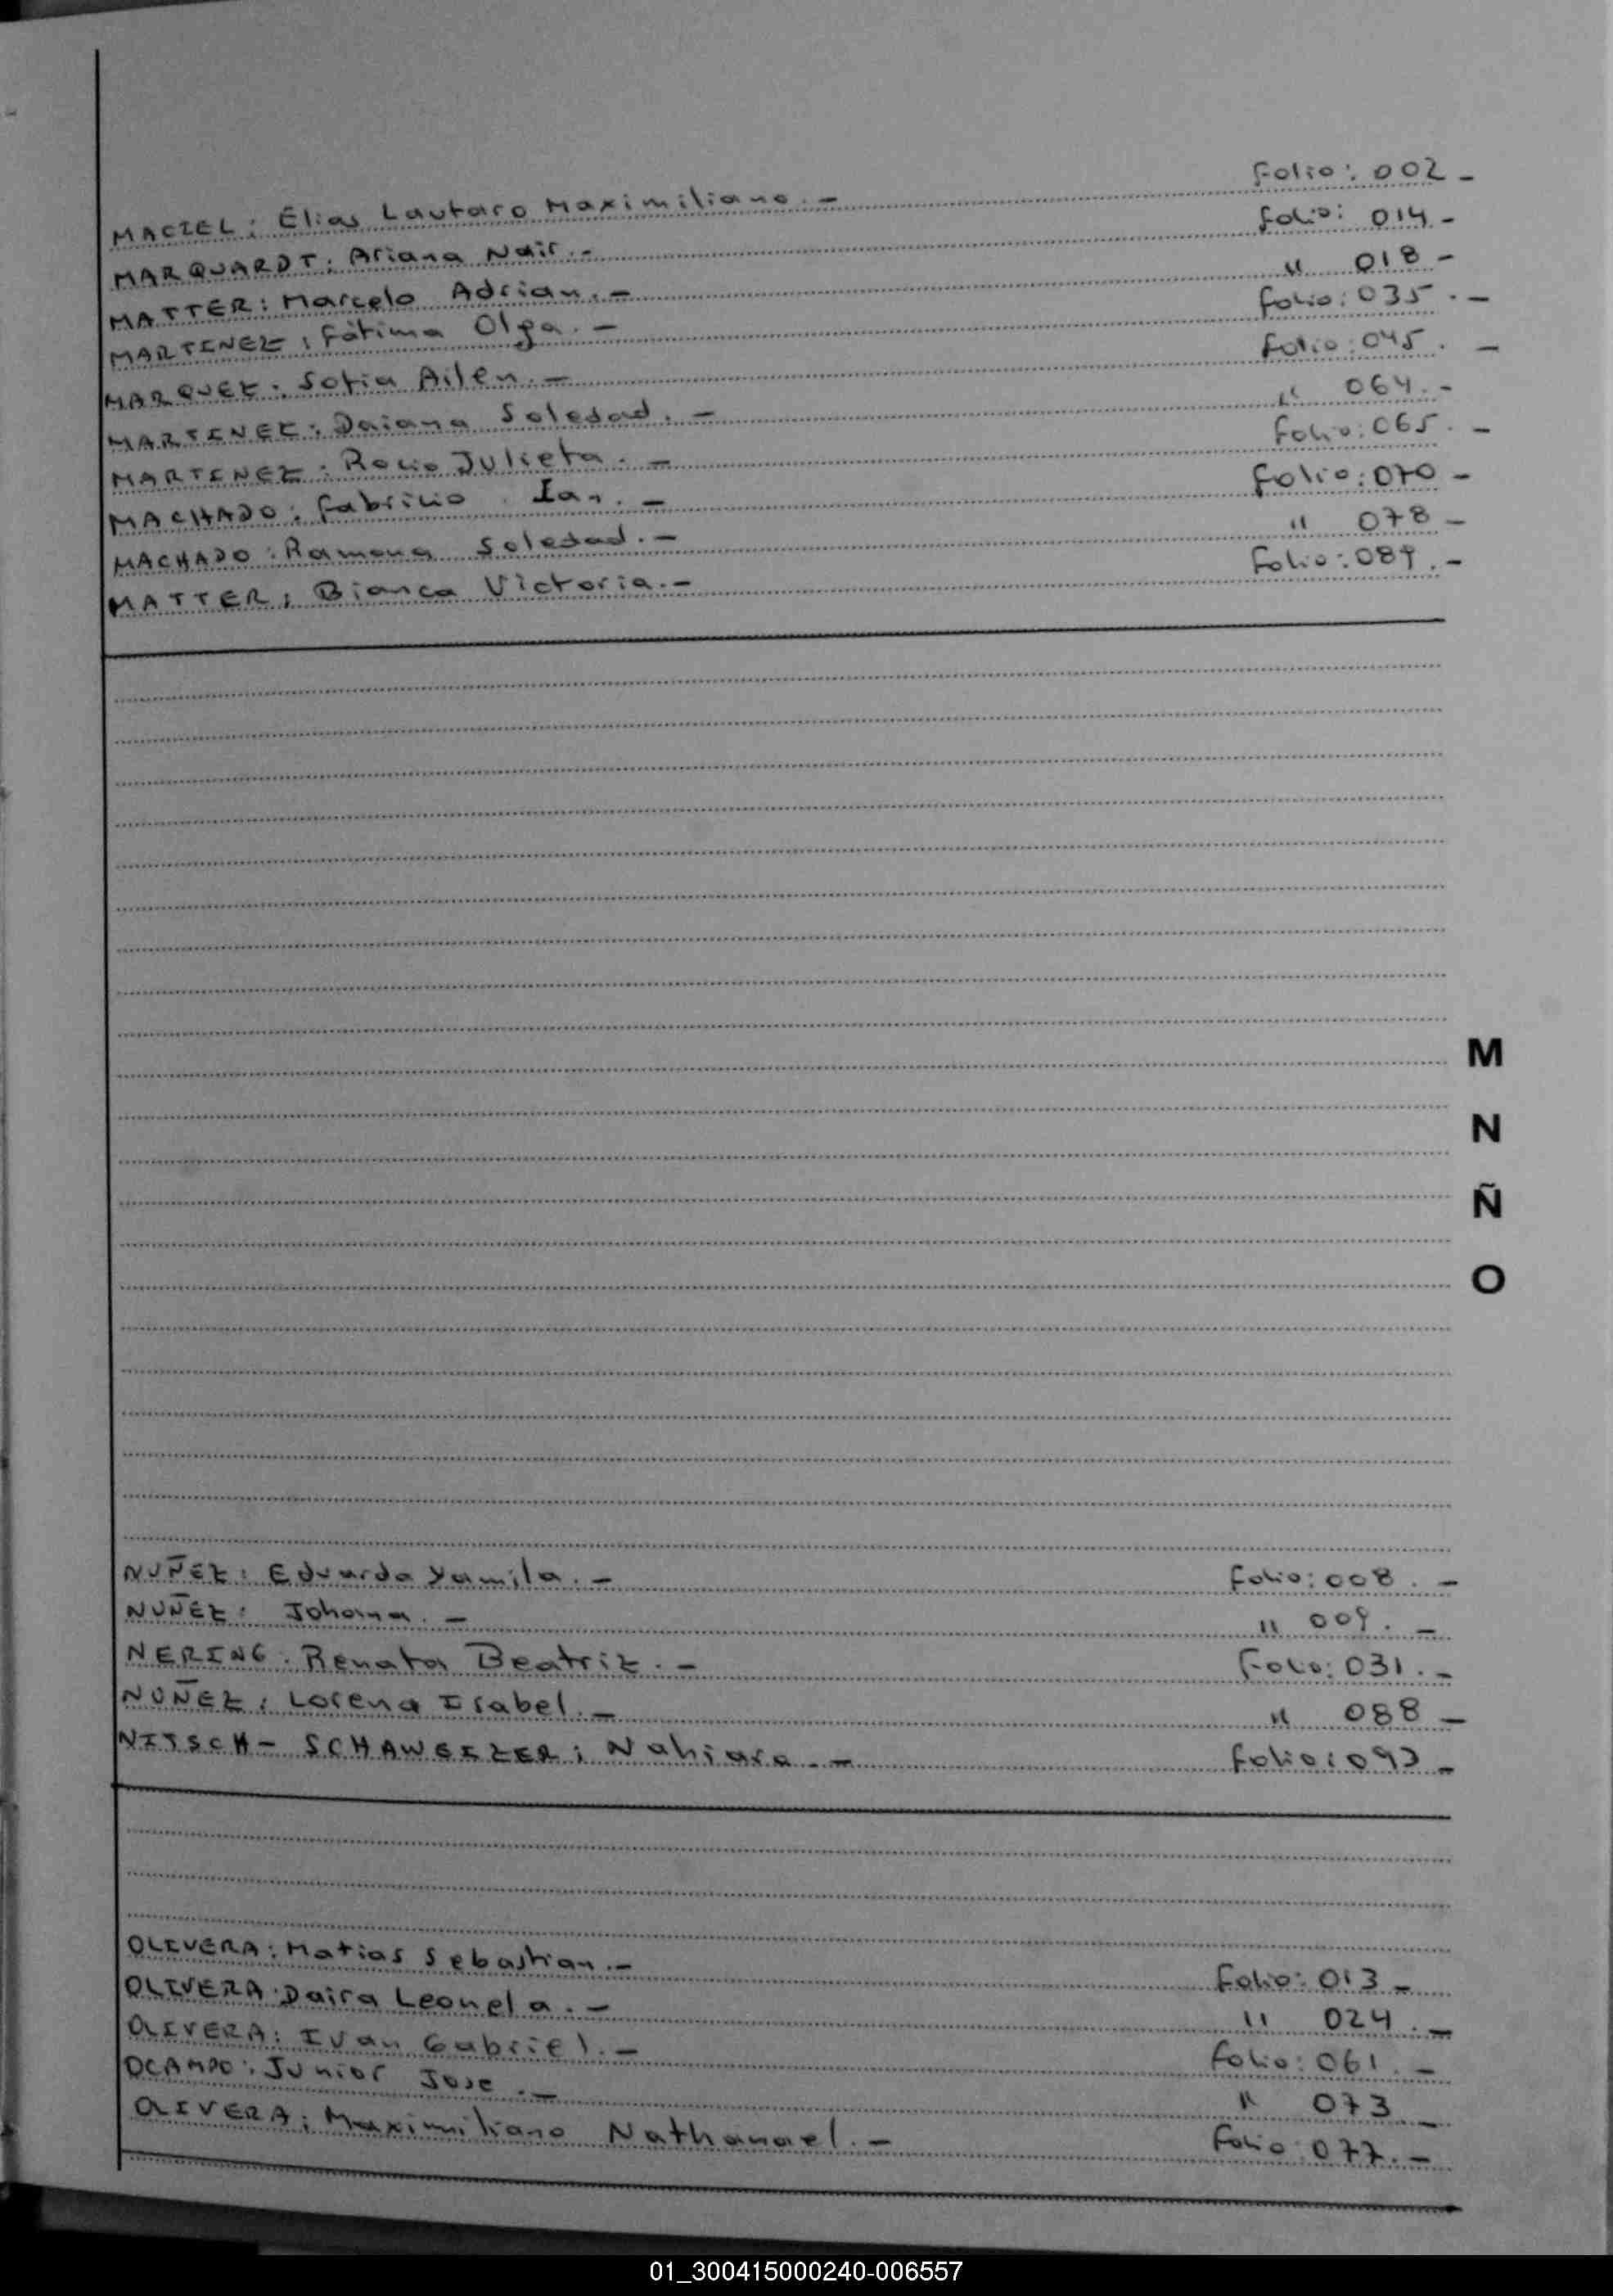 MACIEL: Elias Lautaro Maximiliano.- Folio: 002 -
MARQUARDT: Ariana Nair.- Folio: 014 -
MATTER: Marcelo Adrian.- " 018 -
MARTINEZ: Fátima Olga.- Folio: 035.-
MARQUEZ: Sofia Ailen.- Folio: 045. -
MARTINEZ: Daiana Soledad.- " 064.-
MARTINEZ: Rocio Julieta.- Folio: 065.-
MACHADO: Fabricio Ian.- Folio: 070 -
MACHADO: Ramona Soledad.- " 078 -
MATTER: Bianca Victoria.- Folio: 089.-
M
N
Ñ
O
NUÑEZ: Eduarda Yamila.- Folio: 008.-
NUÑEZ: Johana.- " 009.-
NERING: Renata Beatriz.- Folio: 031.-
NUÑEZ: Lorena Isabel.- " 088 -
NITSCH- SCHAWEIZER: Nahiara.- Folio: 093 -
OLIVERA: Matias Sebastian.- Folio: 013 -
OLIVERA: Daira Leonela.- " 024.-
OLIVERA: Ivan Gabriel.- Folio: 061.-
OCAMPO: Junior Jose.- " 073 -
OLIVERA: Maximiliano Nathanael.- Folio: 077.-
01_300415000240-006557